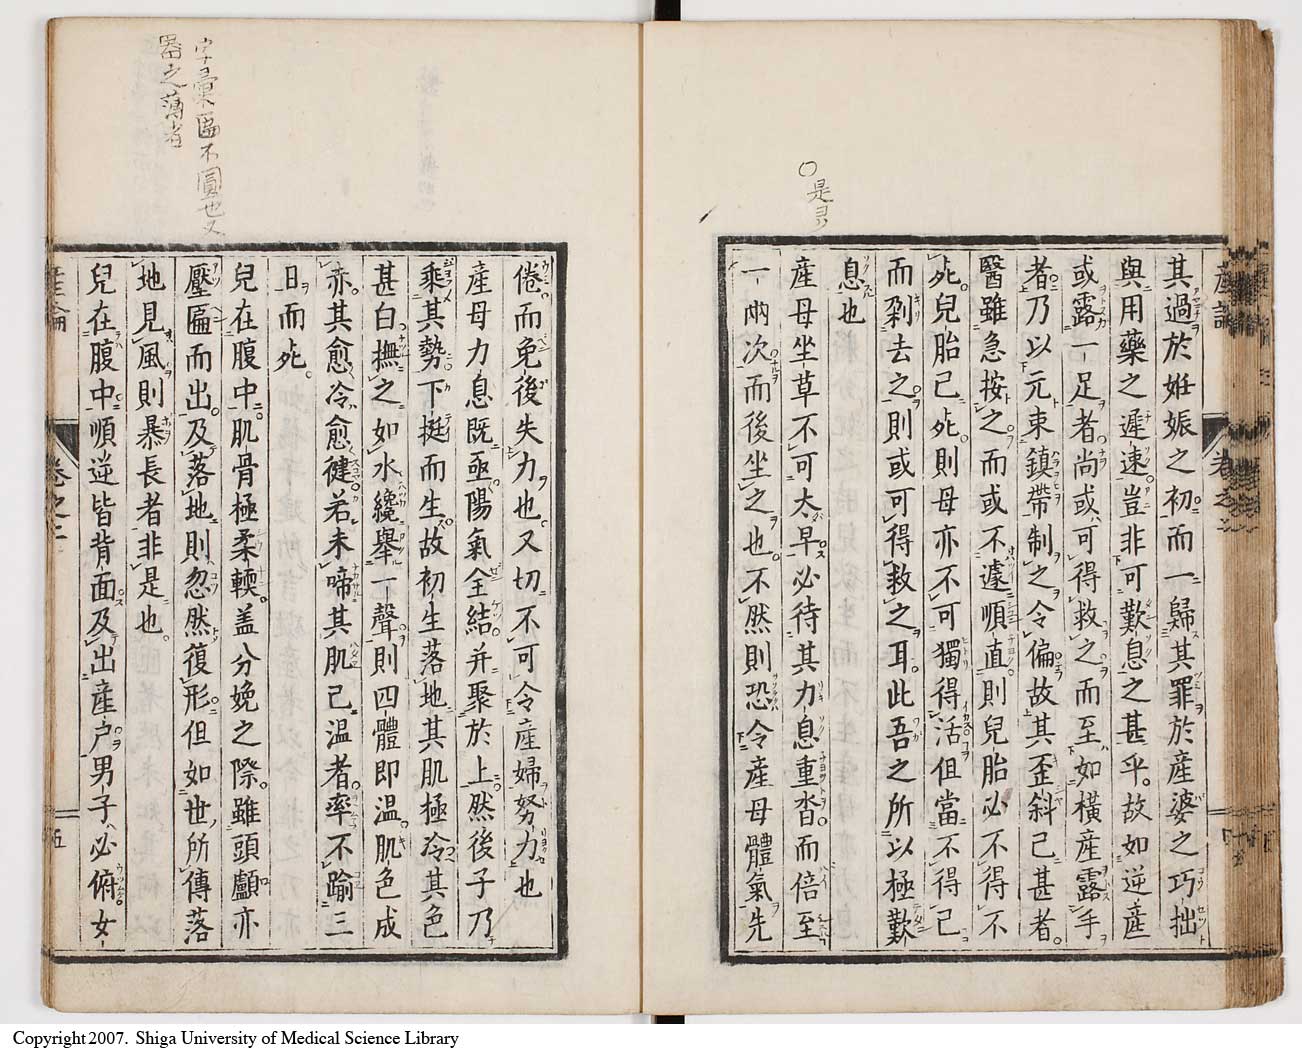 產論
卷之二
其過於姙娠之初而一歸其罪於産婆之巧拙
與用藥之遲速豈非可歎息之甚乎故如逆産
或露一足者尚或可得救之而至如横産露手
者乃以元束鎮帶制之令偏故其歪斜已甚者
醫雖急按之而或不遽順直則兒胎必不得不
死兒胎已死則母亦不可獨得活但當不得已
而剁去之則或可得救之耳此吾之所以極歎
息也
産母坐草不可太早必待其力息重沓而倍至
一兩次而後坐之也不然則恐令産母體氣先
○是ヨリ
倦而免後失力也又切不可令産婦努力也
産母力息既亟陽氣全結并聚於上然後子乃
乘其勢下挺而生故初生落地其肌極冷其色
甚白撫之如水纔舉一聲則四體即温肌色成
赤其愈冷愈健若未啼其肌已温者率不踰三
日而死
兒在腹中肌骨極柔輭盖分娩之際雖頭顱亦
壓匾而出及落地則忽然復形但如世所傳落
地見風則暴長者非是也
兒在腹中順逆皆背面及出産户男子必俯女
字彙匾不圓也又
器之薄者
產論
卷之二
五
Copyright 2007. Shiga University of Medical Science Library